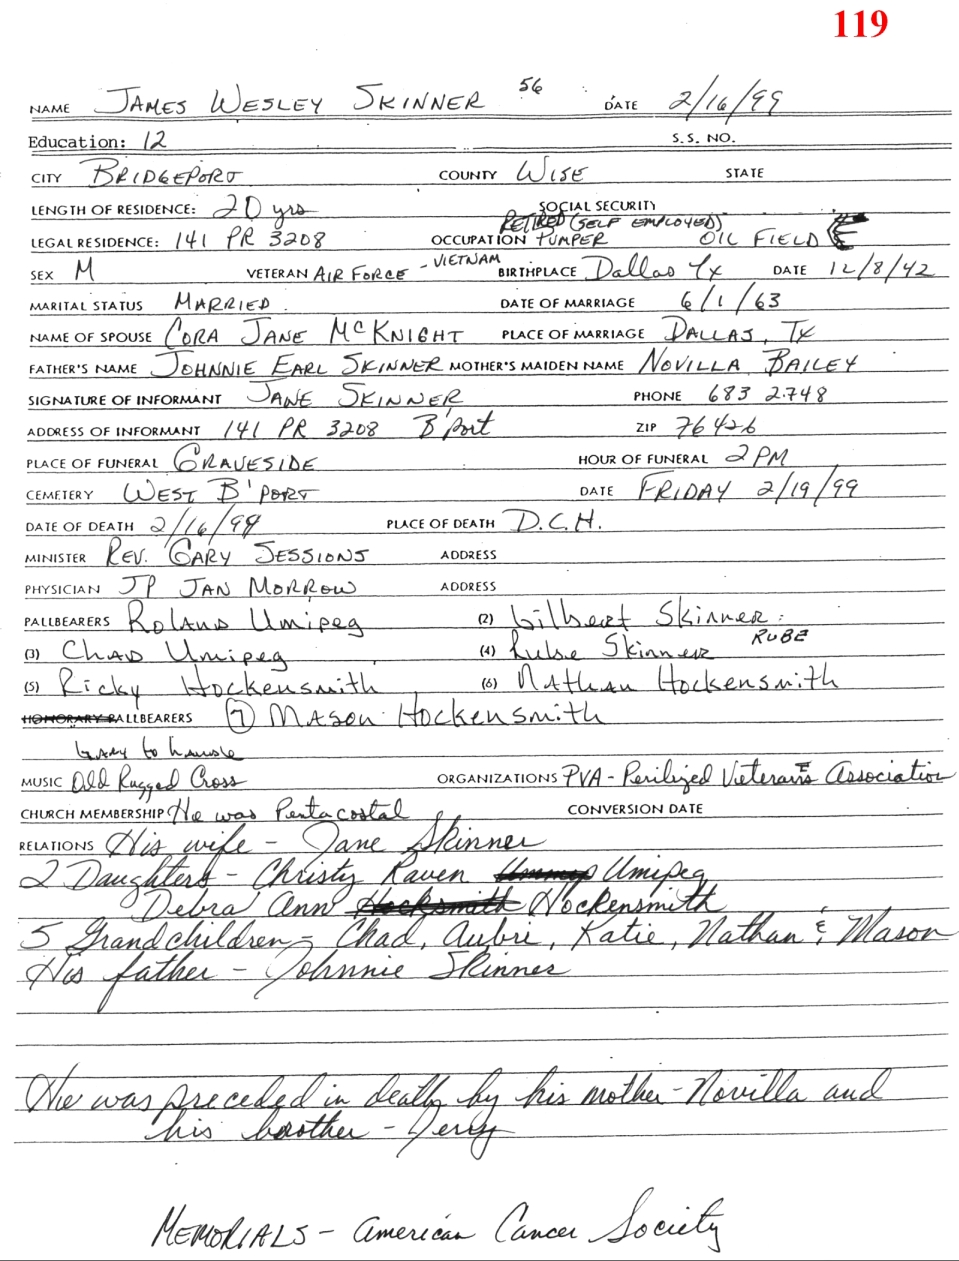 119
NAME JAMES WESLEY SKINNER 56 DATE 2/16/99
Education: 12 S.S. NO.
CITY BRIDGEPORT COUNTY WISE STATE
LENGTH OF RESIDENCE: 20 yrs SOCIAL SECURITY
RETIRED (SELF EMPLOYED)
LEGAL RESIDENCE: 141 PR 3208 OCCUPATION PUMPER OIL FIELD
SEX M VETERAN AIR FORCE - VIETNAM BIRTHPLACE Dallas Tx DATE 12/8/42
MARITAL STATUS MARRIED DATE OF MARRIAGE 6/1/63
NAME OF SPOUSE CORA JANE MCKNIGHT PLACE OF MARRIAGE DALLAS, TX
FATHER'S NAME JOHNNIE EARL SKINNER MOTHER'S MAIDEN NAME NOVILLA BAILEY
SIGNATURE OF INFORMANT JANE SKINNER PHONE 683 2748
ADDRESS OF INFORMANT 141 PR 3208 B'port ZIP 76426
PLACE OF FUNERAL GRAVESIDE HOUR OF FUNERAL 2 PM
CEMETERY WEST B'PORT DATE FRIDAY 2/19/99
DATE OF DEATH 2/16/99 PLACE OF DEATH D.C.H.
MINISTER REV. GARY SESSIONS ADDRESS
PHYSICIAN JP JAN MORROW ADDRESS
PALLBEARERS Roland Umipeg (2) Gilbert Skinner
(3) Chad Umipeg (4) Rube Skinner RUBE
(5) Ricky Hockensmith (6) Nathan Hockensmith
HONORARY PALLBEARERS (7) Mason Hockensmith
Gary to handle
MUSIC Old Rugged Cross ORGANIZATIONS PVA - Perilized Veterans Association
CHURCH MEMBERSHIP He was Pentacostal CONVERSION DATE
RELATIONS His wife - Jane Skinner
2 Daughters - Christy Raven Umipeg
Debra Ann Hockensmith
5 Grandchildren - Chad, Aubri, Katie, Nathan & Mason
His father - Johnnie Skinner
He was preceded in death by his mother - Novilla and
his brother - Jerry
MEMORIALS - American Cancer Society